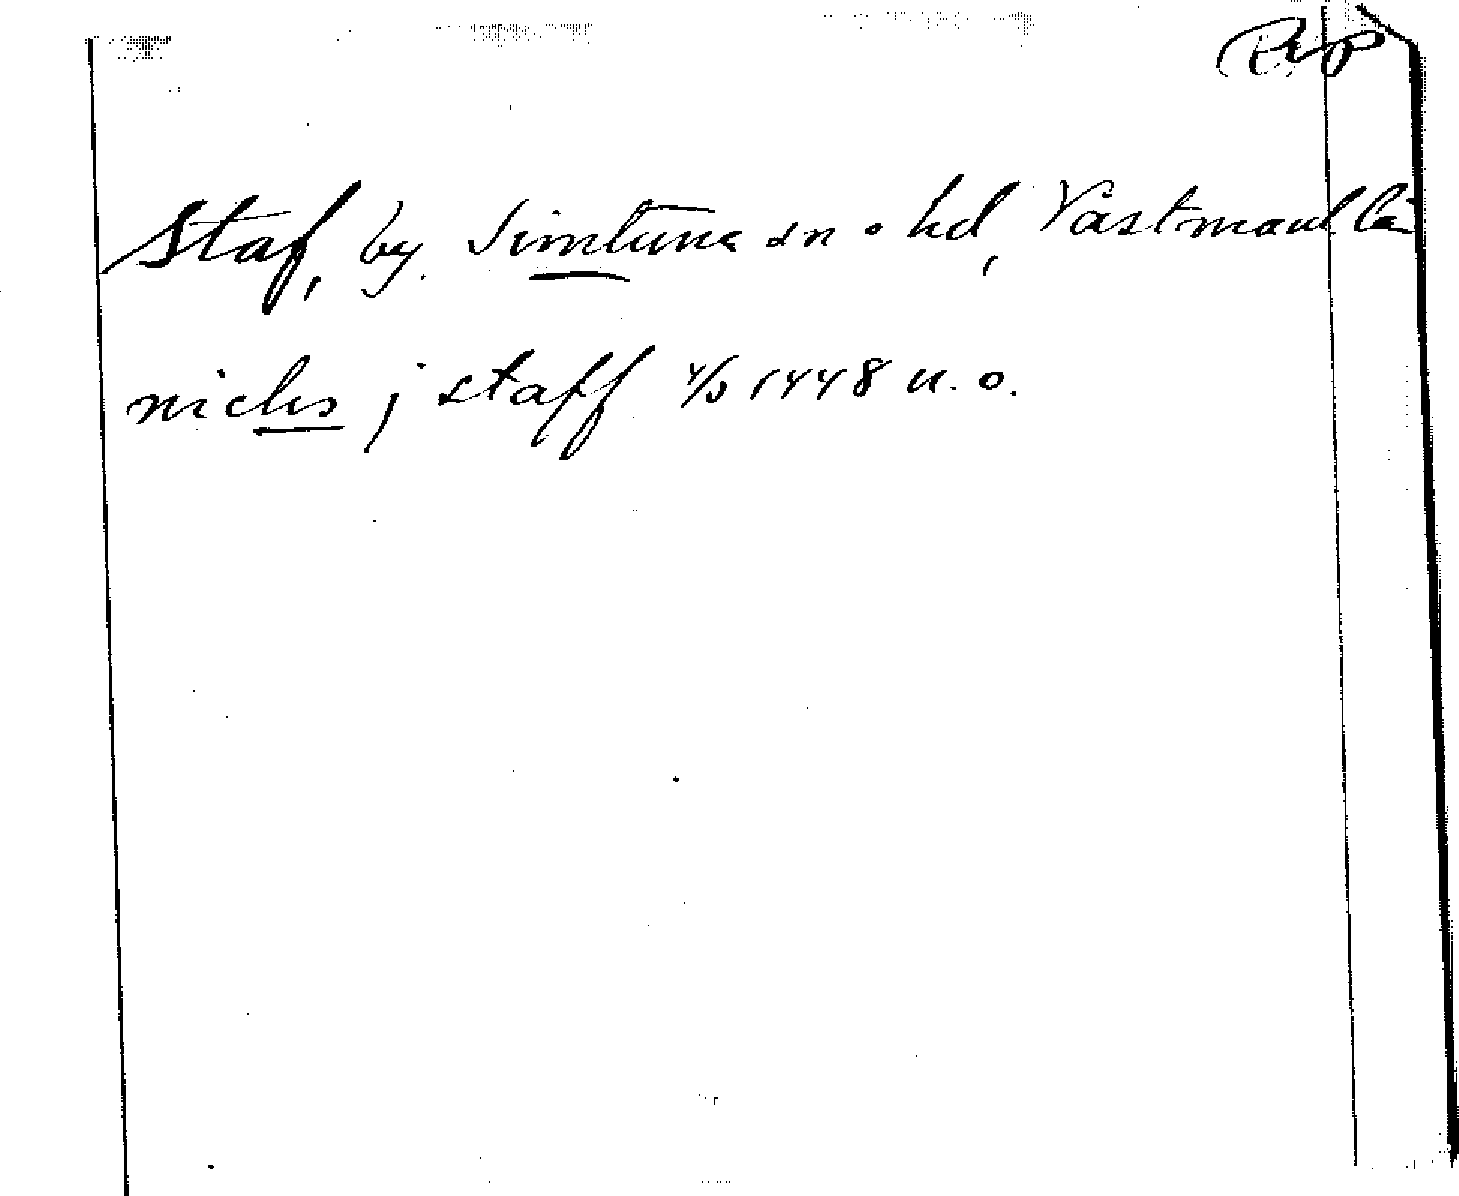 Staf, by. Simtuna sn o hd, Västmanl lä
nichs j staff 4/5 1448 u. o.